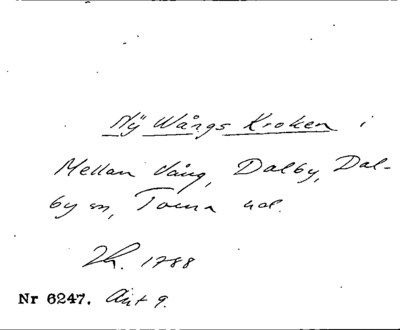 Nÿ Wångs Kroken i
Mellan Vång, Dalby, Dal-
by sn, Torna hd.
Lh. 1788
Nr 6247. Akt 9.